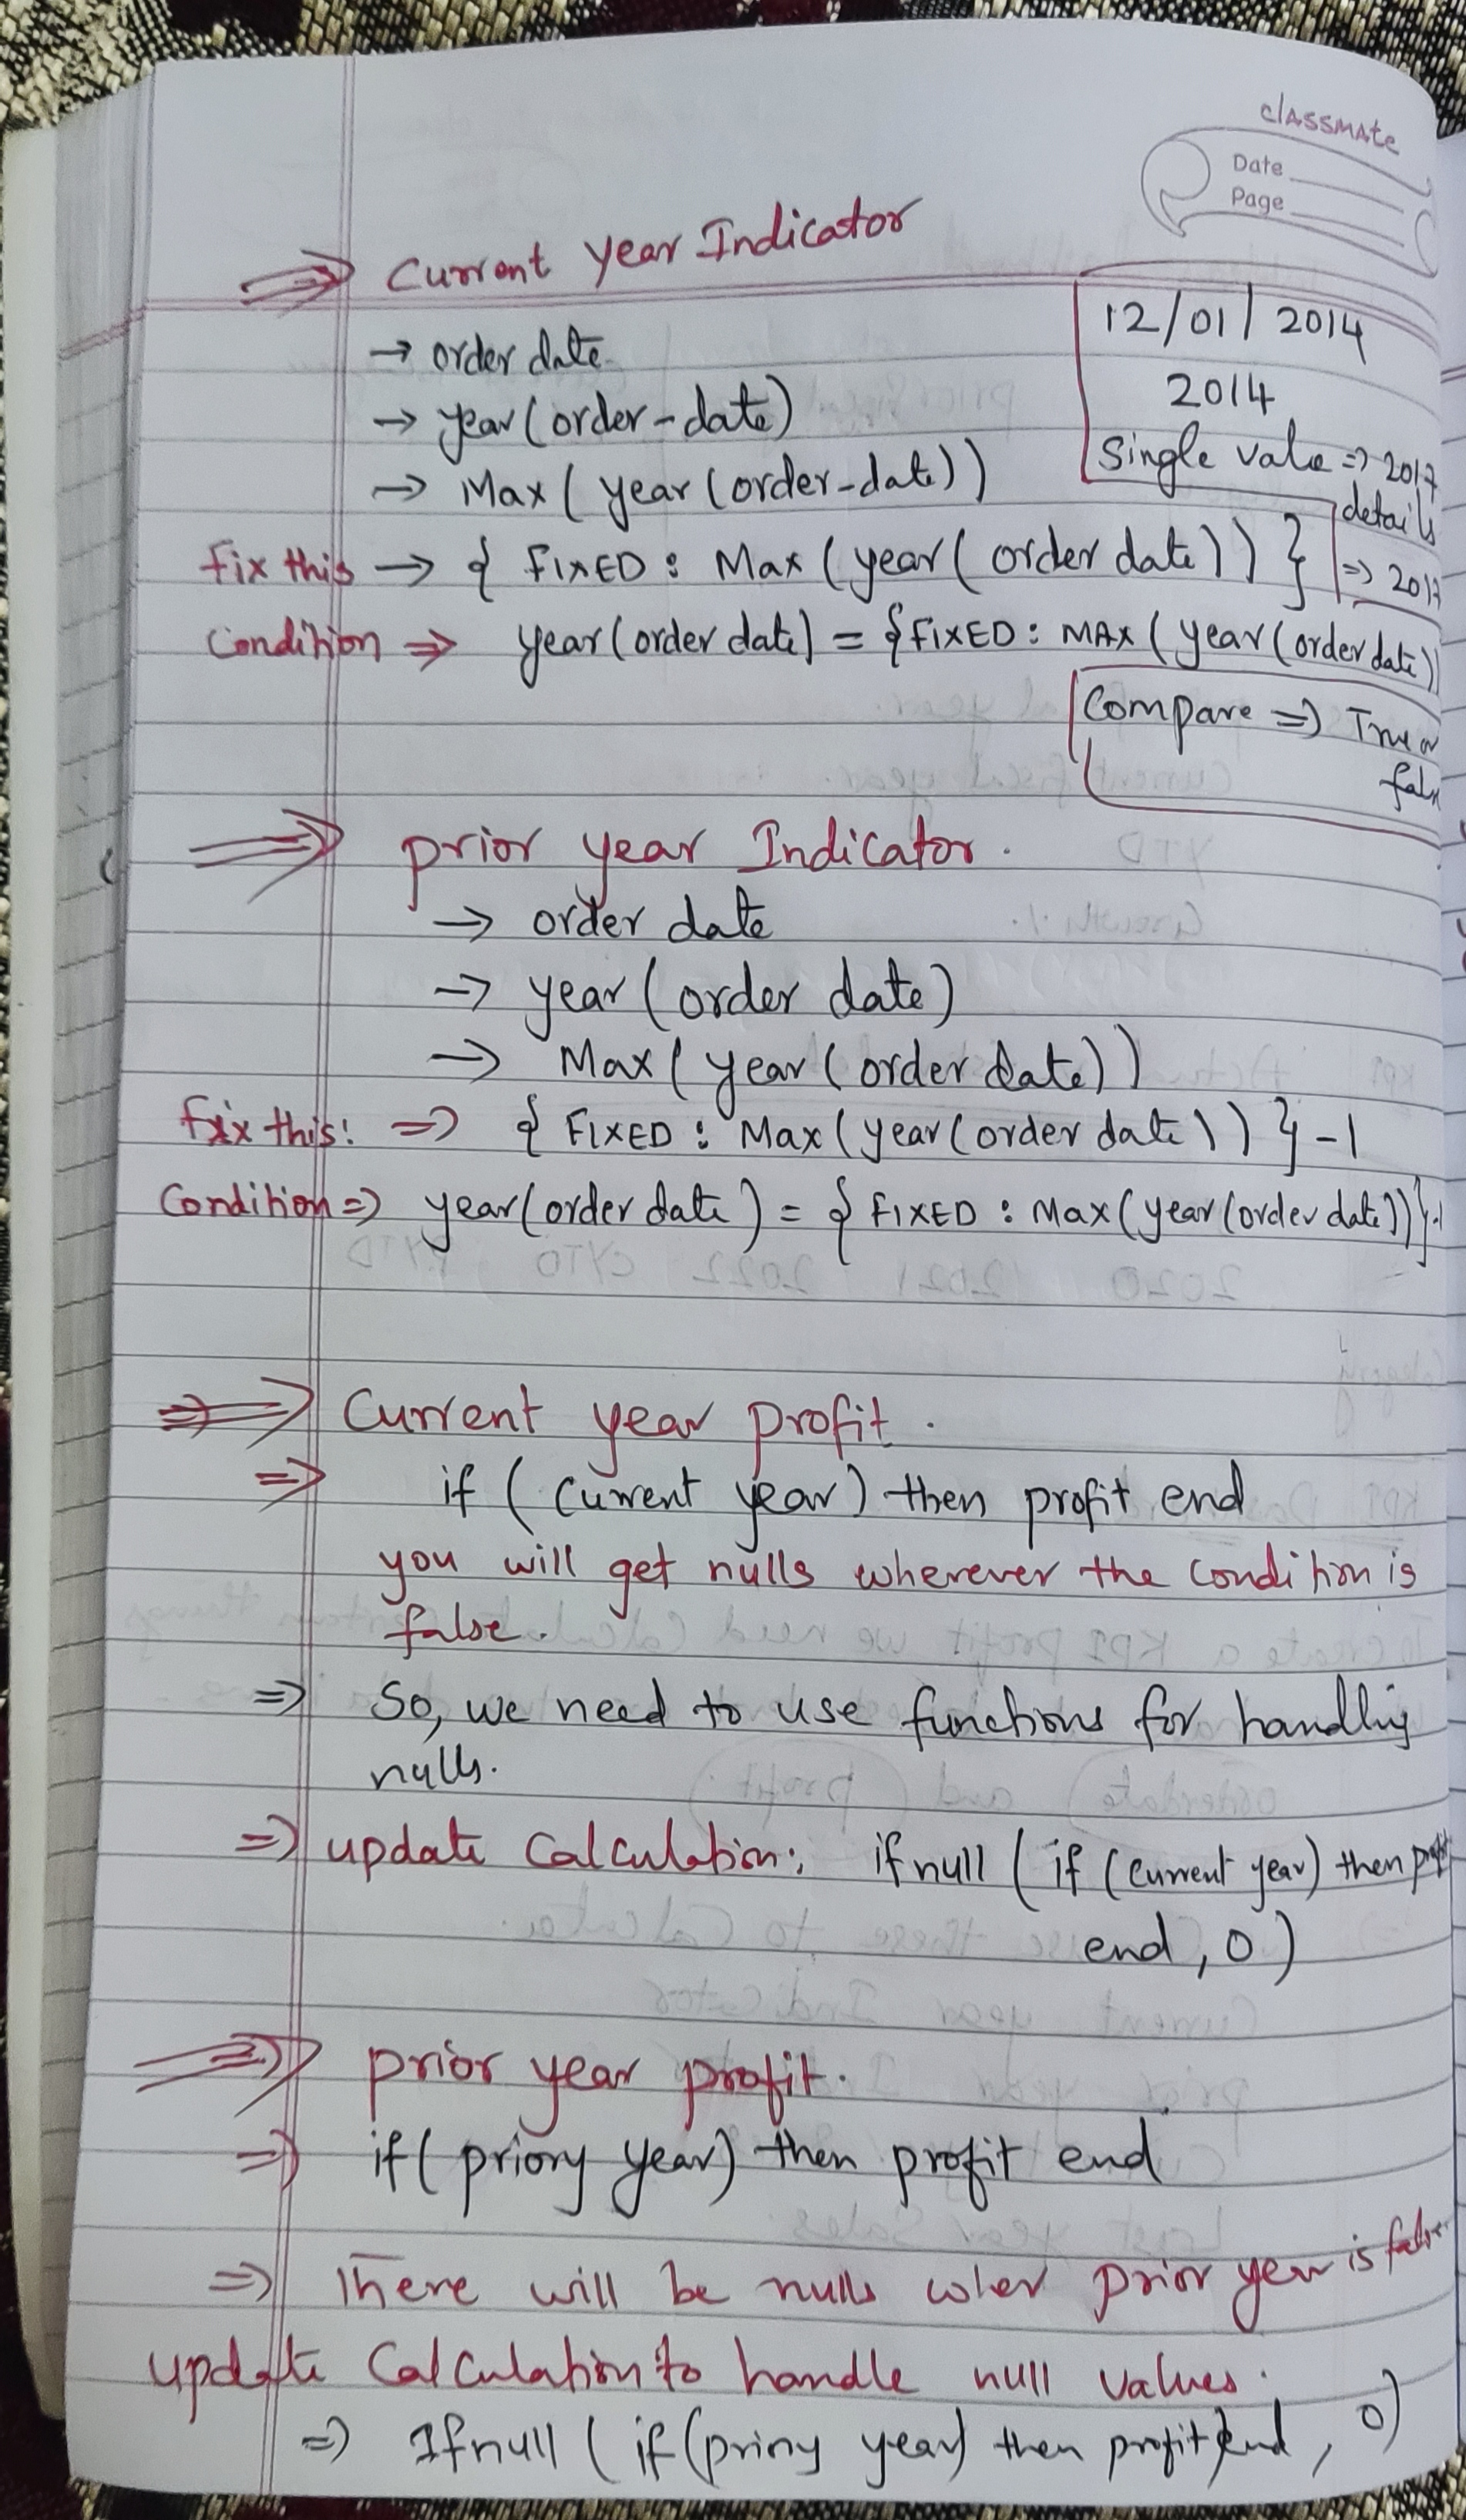 classmate
Date
Page
⇒ Current year Indicator
→ order date
→ year (order-date)
→ Max ( year (order-date))
12/01/2014
2014
Single value => 2017
details
=> 2017
Fix this → { FIXED : Max ( year ( order date ) ) }
Condition ⇒ year (order date) = {FIXED : MAX ( year (order date))
Compare => True or
fals
⇒ prior year Indicator.
→ order date
→ year ( order date)
→ Max ( year ( order date))
Fix this: => { FIXED : Max ( year ( order date ) ) } -1
Condition => year (order date ) = { FIXED : Max ( year (order date))}-1
⇒ Current year profit.
=> if ( Current year ) then profit end
you will get nulls wherever the condition is
false.
=> So, we need to use functions for handling
nulls.
=> update Calculation: ifnull ( if (current year) then profit
end, 0 )
⇒ prior year profit.
=> if ( priory year) then profit end
=> There will be nulls when prior year is false
update Calculation to handle null values.
=> Ifnull ( if (priory year) then profit end , 0)